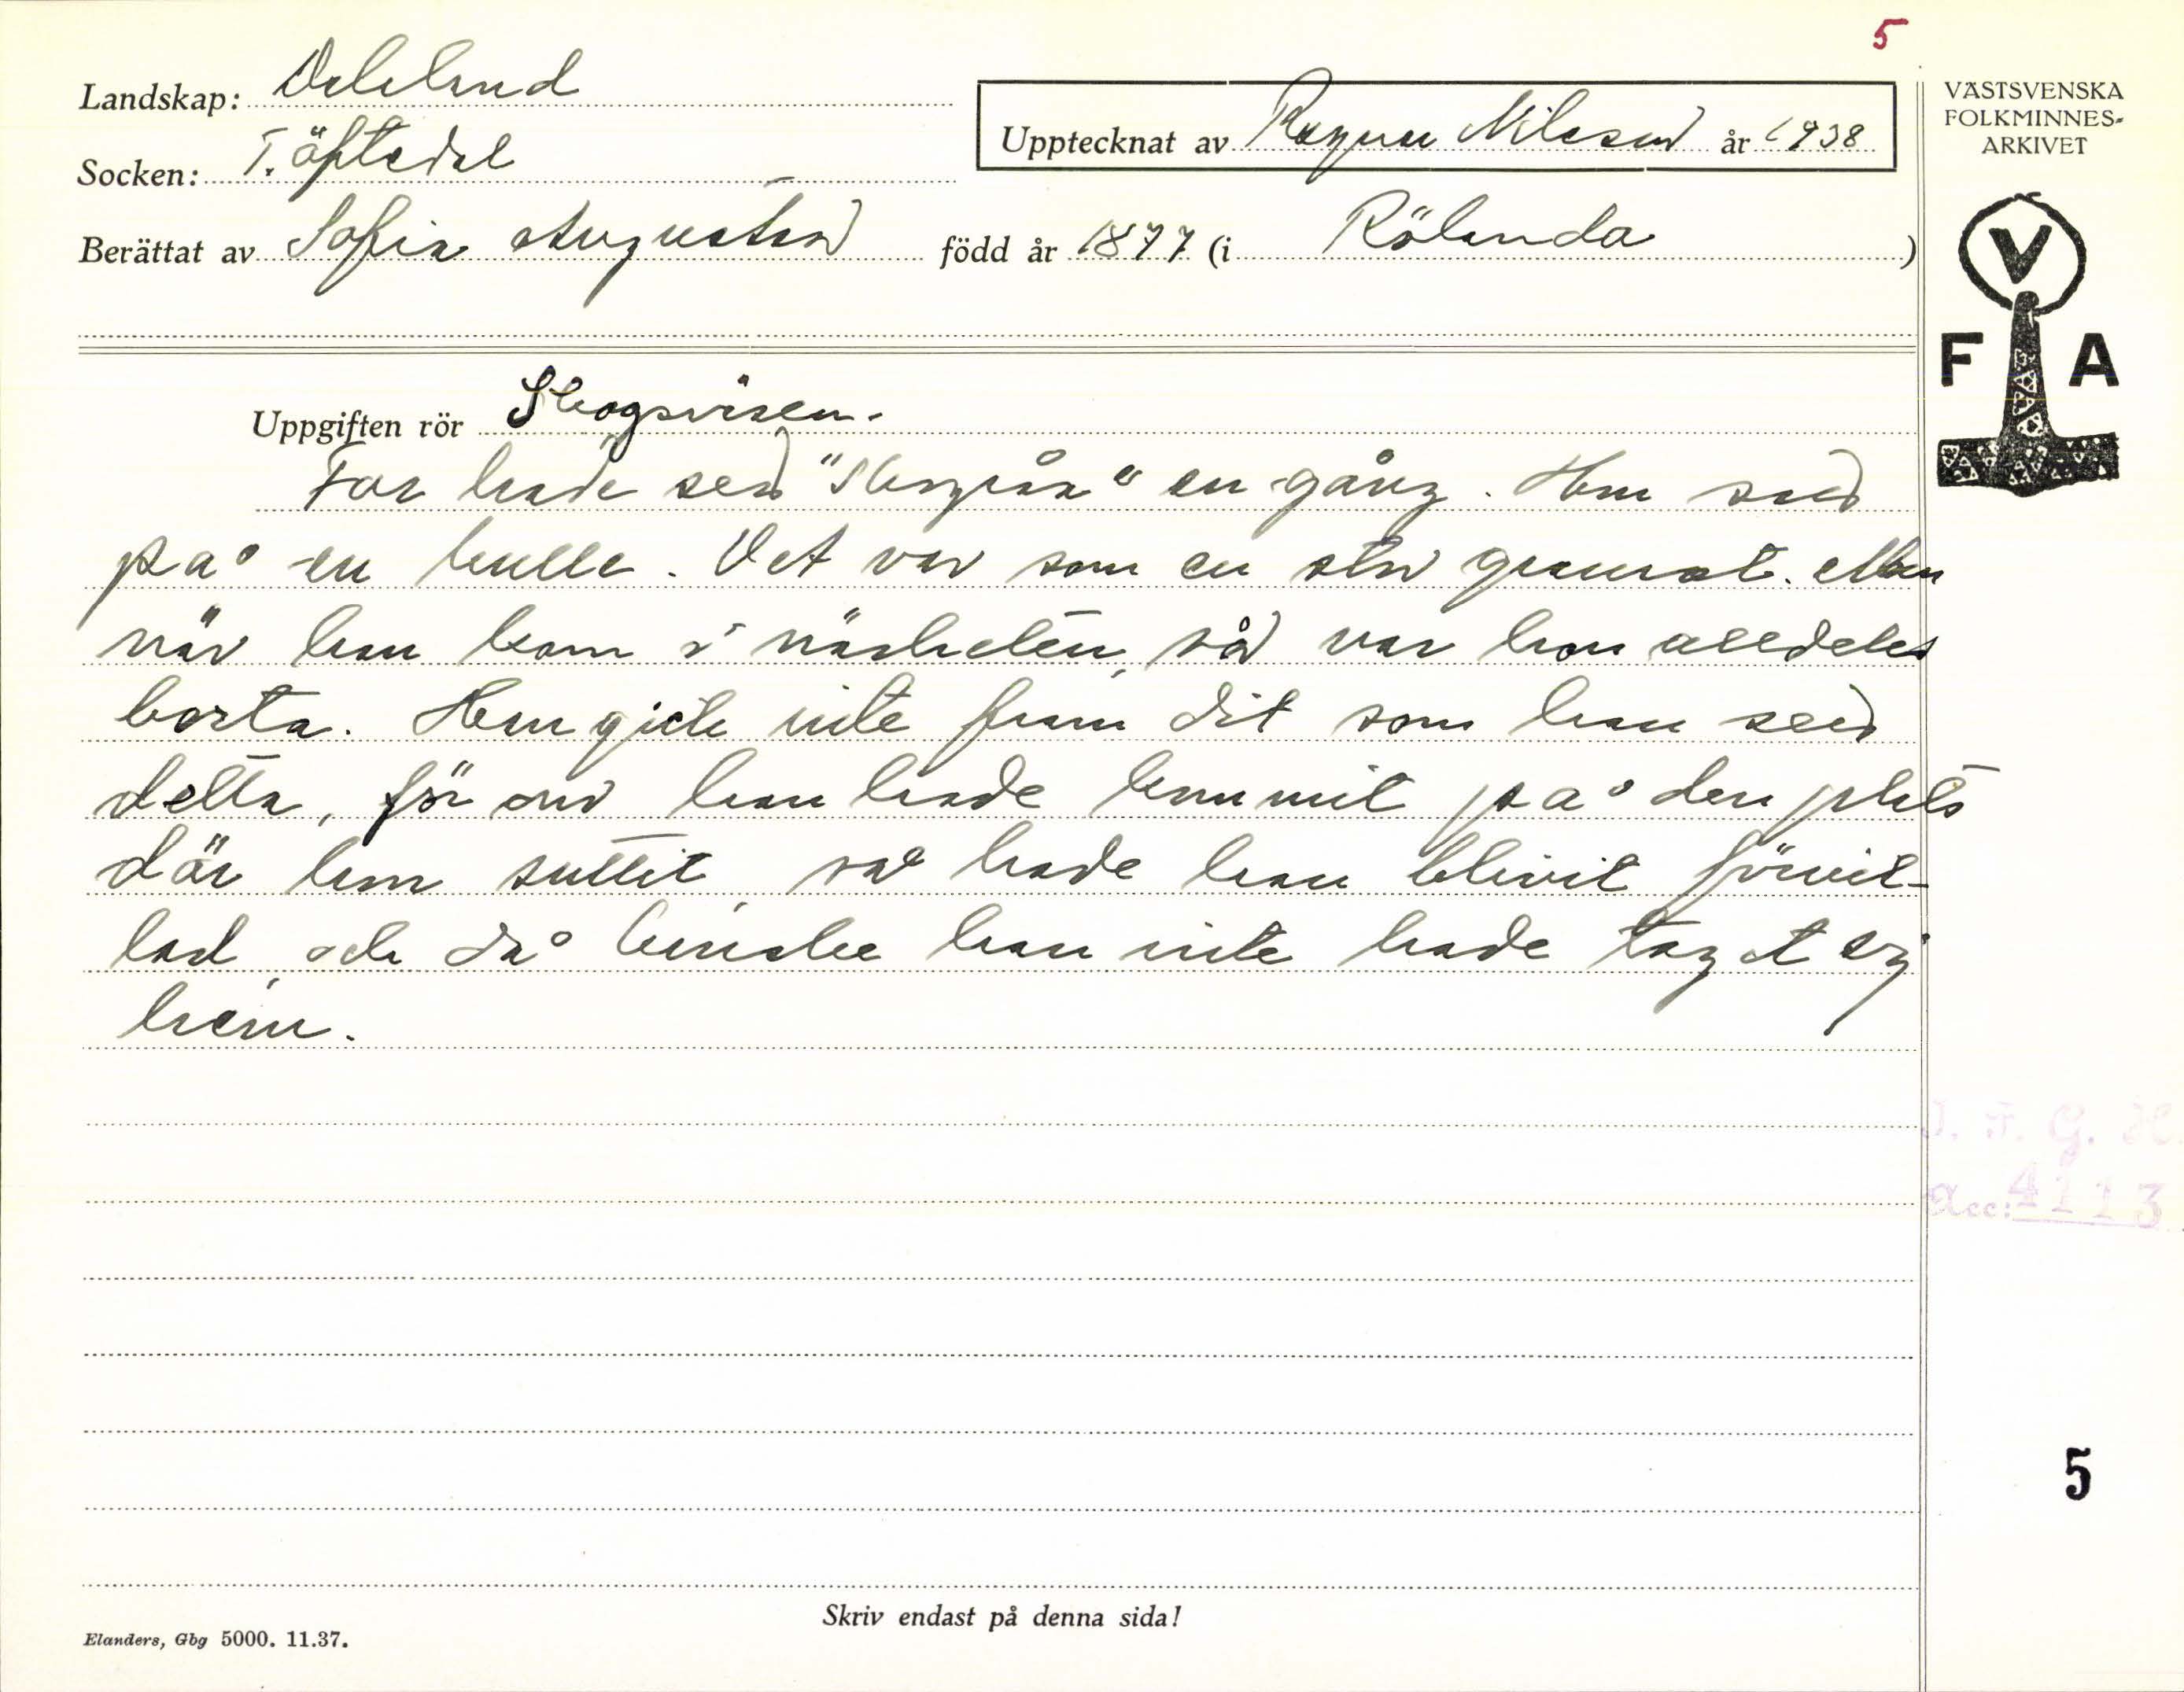 5
Landskap: Dalsland
Socken: Töftedal
Upptecknat av Ragnar Nilsson år 1938
Berättat av Sofia Augustson född år 1877 (i Rölanda)
VÄSTSVENSKA
FOLKMINNES-
ARKIVET
V
F A
Uppgiften rör Skogsråen.
Far hade sett "Skogråa" en gång. Hon satt
på en kulle. Det var som en stor granrot. Men
när han kom i närheten, så var hon alldeles
borta. Han gick inte fram dit som han sett
detta, för om han hade kommit på den plats
där hon suttit, så hade han blivit förvil-
lad, och då kanske han inte hade tagit sig
hem.
I. F. G. H.
Acc: 4113
5
Skriv endast på denna sida!
Elanders, Gbg 5000. 11.37.